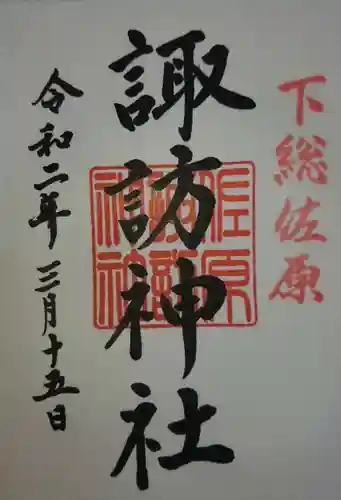 下総佐原
諏訪神社
佐原
諏訪
神社
令和二年 三月十五日